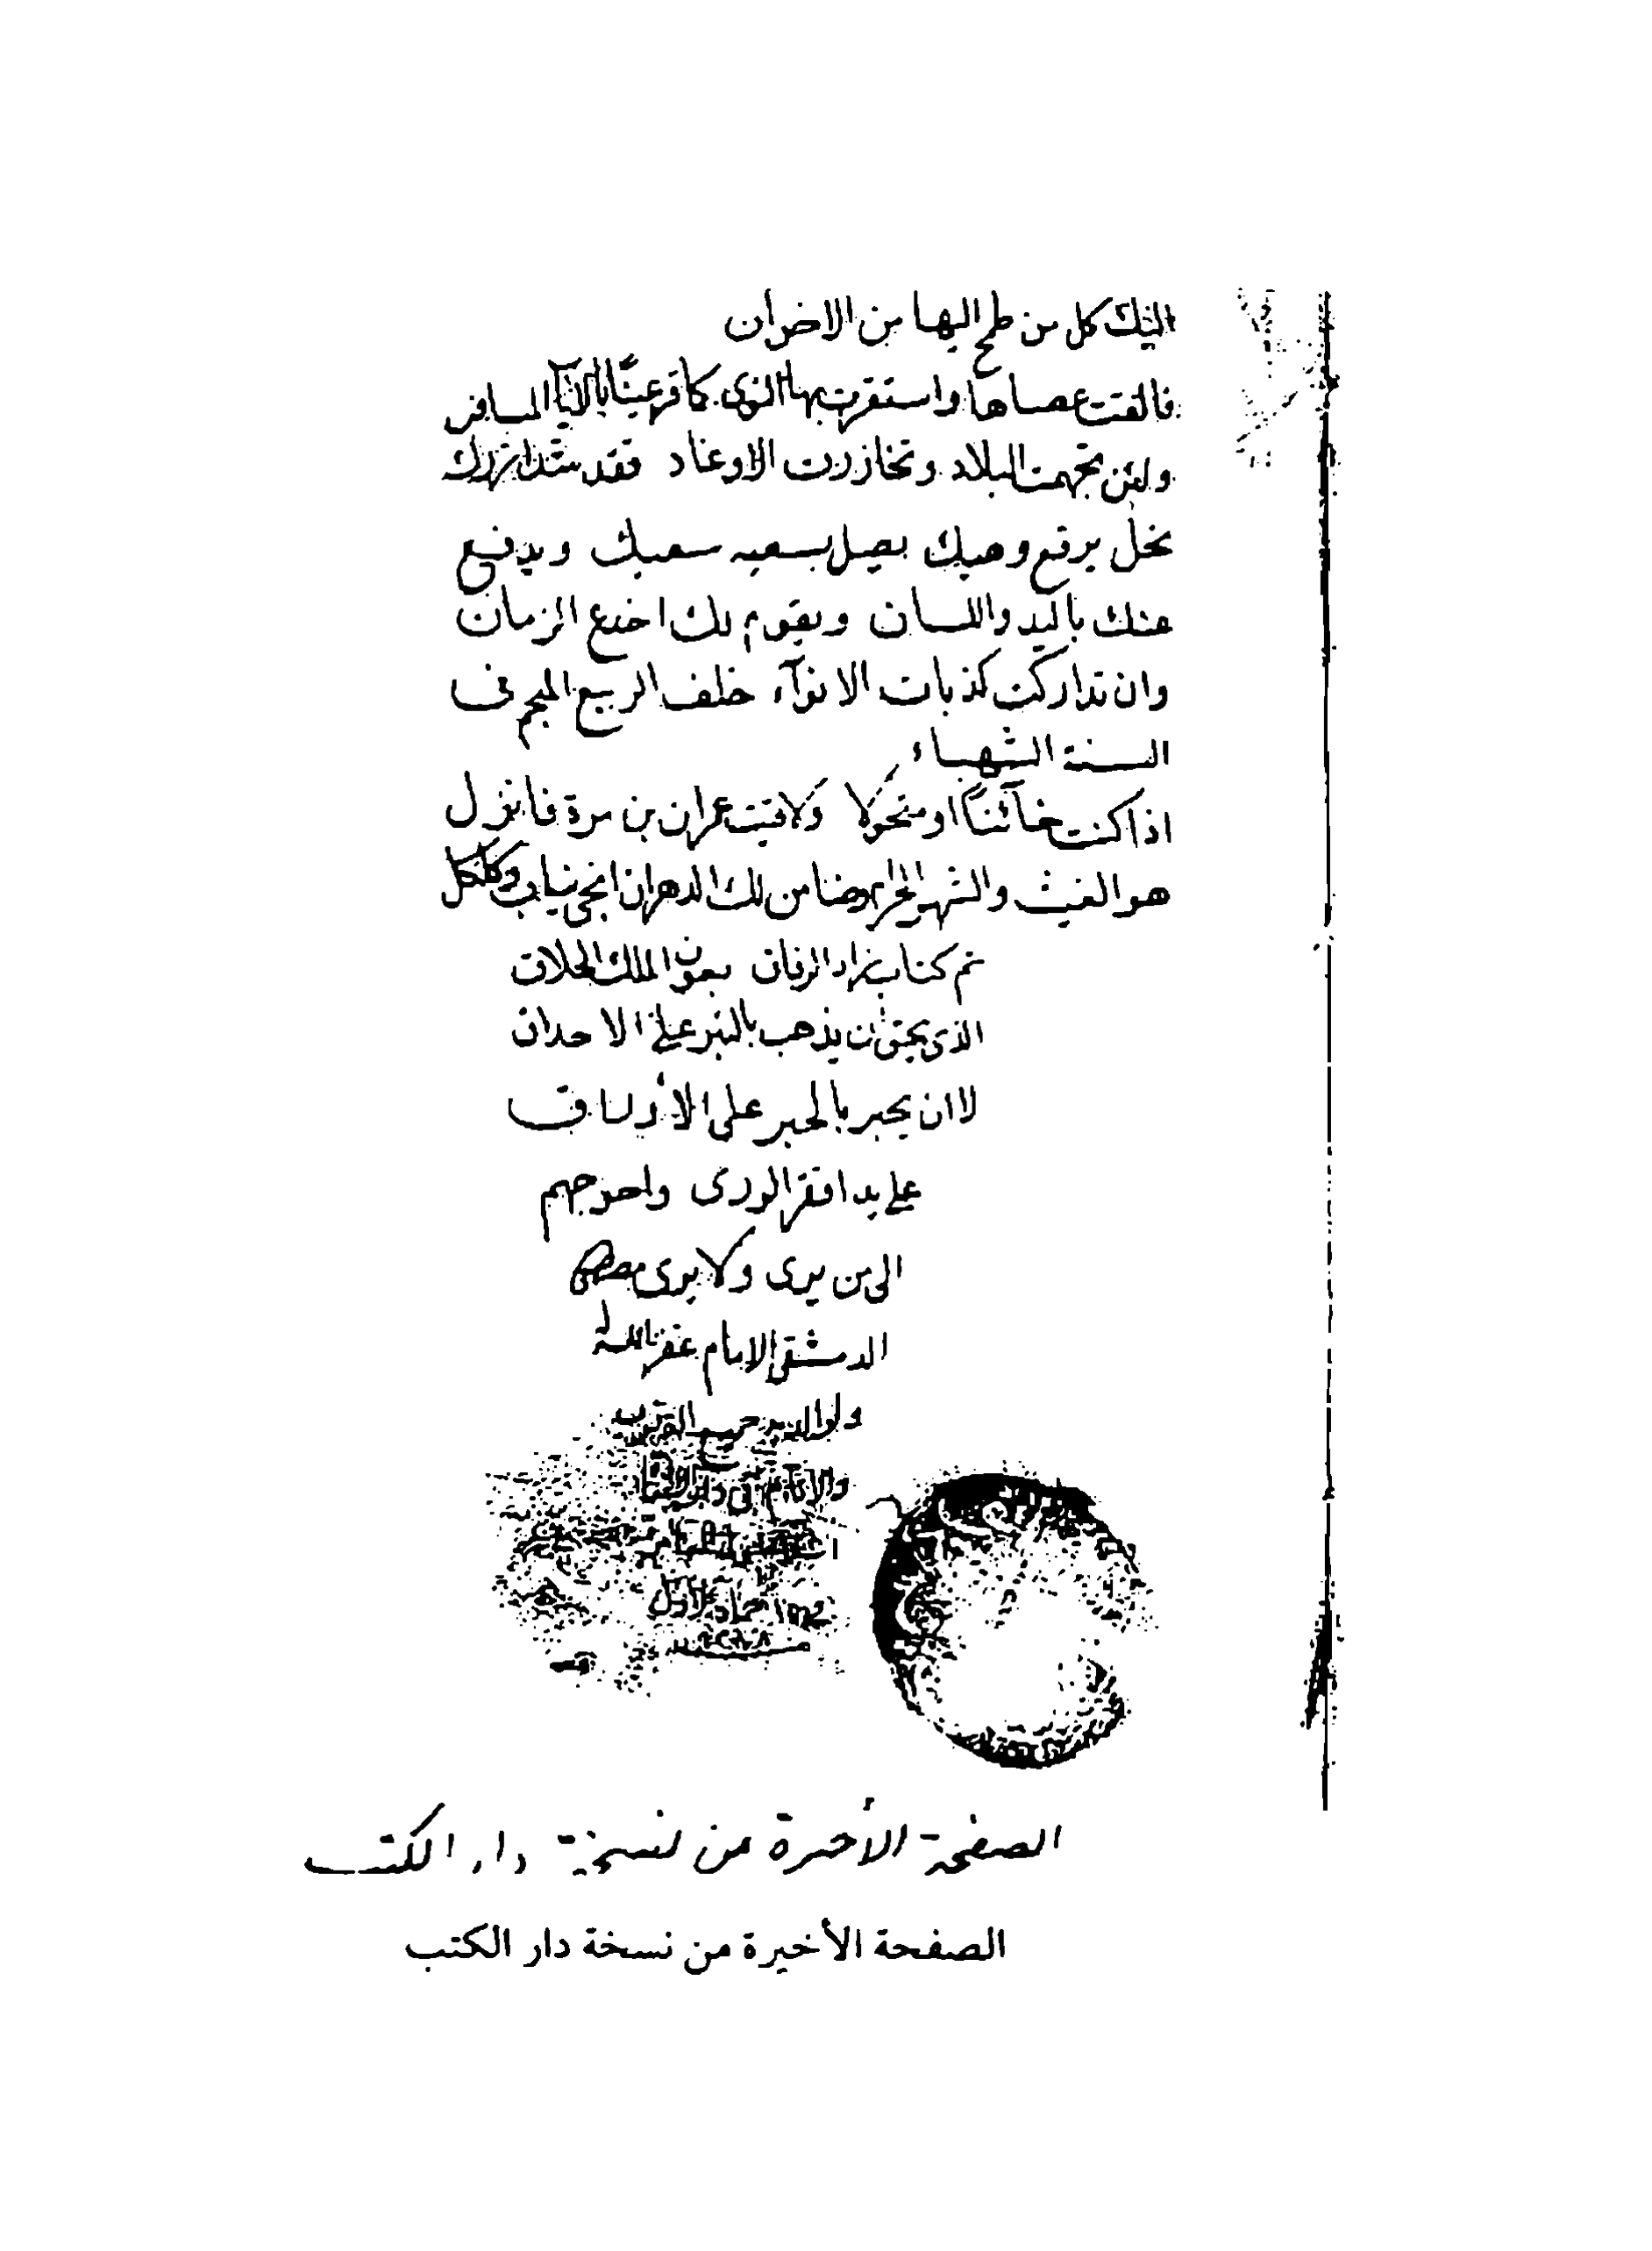 اليك كل من طمح اليها من الاخوان
فالقت عصاها واستقرت بها النوى كما قر عينًا بالاياب المسافر
ولئن تجهمت البلاد وتخازرت الاوغاد فقد شد ازرك
نجل يرقع وهيك يصل بسعيه سعيك ويدفع
عنك باليد واللسان ويقوم لك اخدع الزمان
وان تداركت كذبات الانوآء خلف الربيع المثجم فى
السنة الشهباء
اذا كنت خائنًا او متحولا ولاقيت عمران بن مرة فانزل
هو الغيث والشهر الحرام وضامن لك الدهر ان انجى بناب وكلكل
تم كتاب زاد الرفاق بعون الملك الخلاق
الذى يحق ان يذهب بالتبر على الاحداق
لا ان يحبر بالحبر على الأوراق
على يد افقر الورى واحوجهم
الى من يرى ولا يرى مصطفى
الدمشقى الامام غفر الله له
ولوالديه
الصفحة الأخيرة من نسخة دار الكتب
الصفحة الأخيرة من نسخة دار الكتب